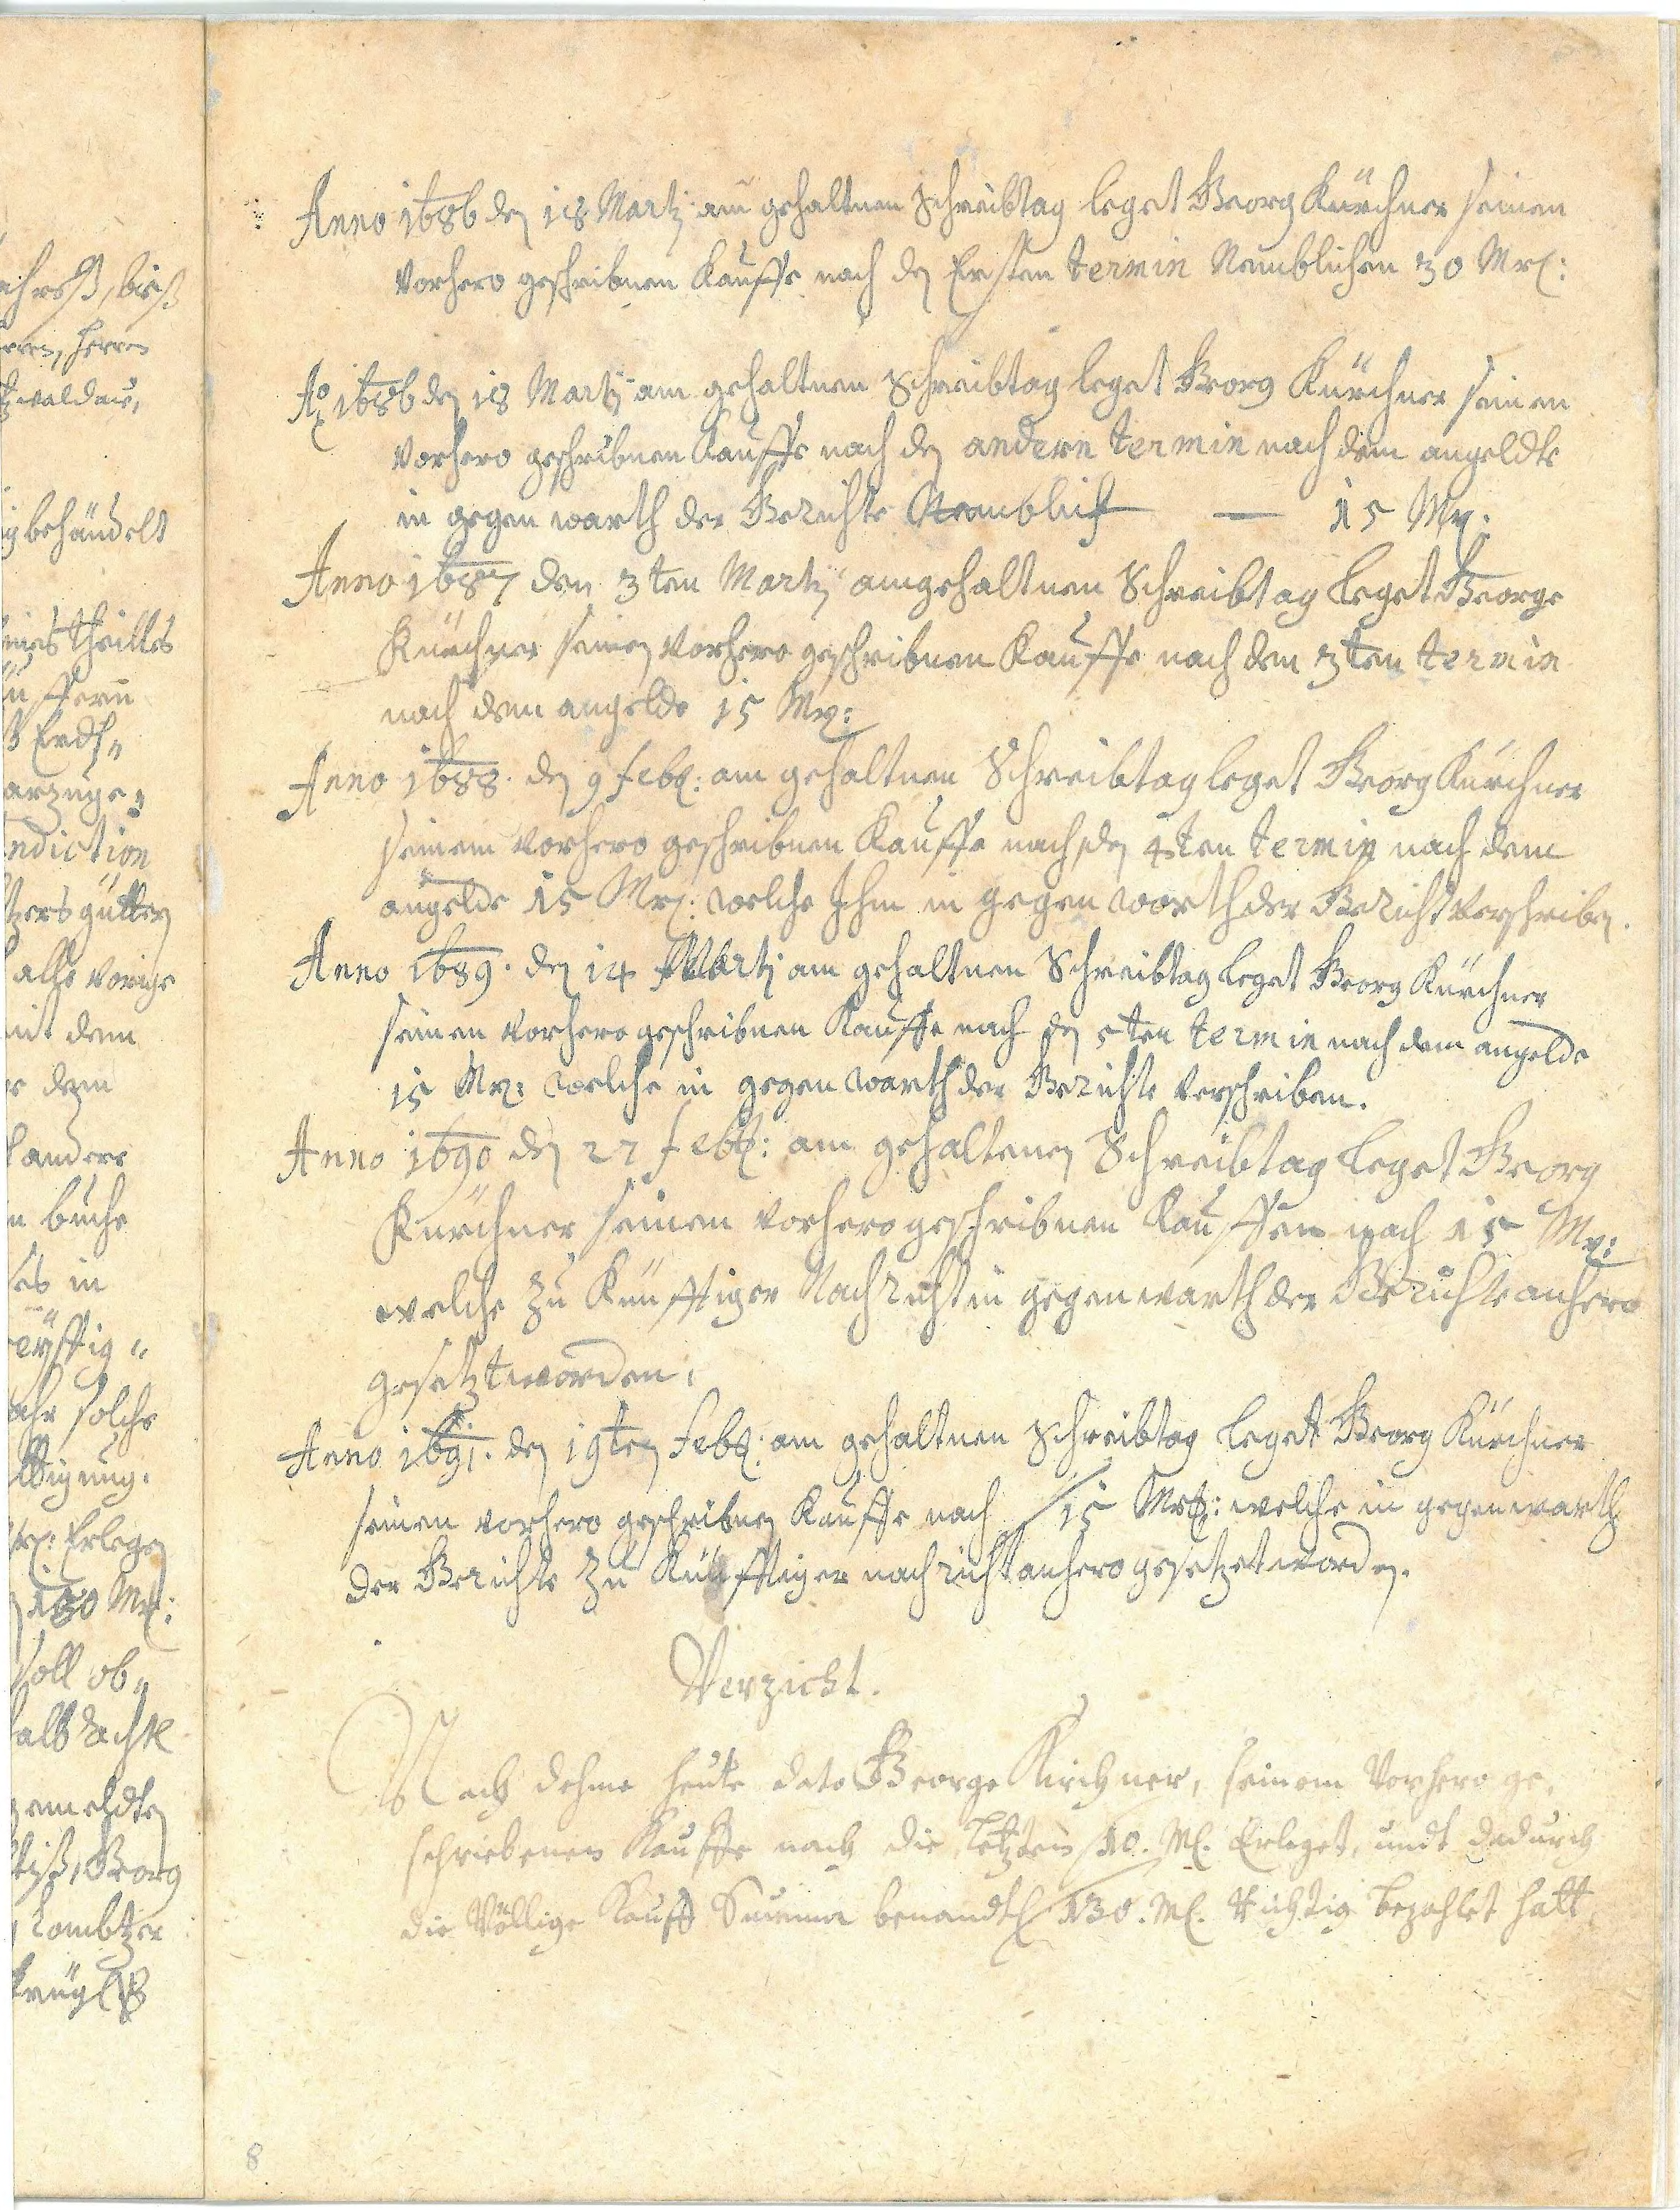 ahreß, biß
erren, Herren
walдau,
ig behändelt
eines theilles
ß Erdh„
arzuge„
ndiction
tzers gütter
alle vorige
mit dem
e dem
andere
n buche
es in
eyffig„
ahr solche
ldigung.
Mrl: Erlegen
130 Mrl:
soll ob„
halb Sachse
gemeldten
Georg
Anno 1686 den 18 Martÿ am gehaltnen Schreibtag leget Georg Kürchner seinen
vorhero geschribnen Kauffe nach den Ersten termin Nemblichen 30 Mrl:
Ao 1686 den 18 Martÿ am gehaltnen Schreibtag leget Georg Kürchner seinen
vorhero geschribnen Kauffe nach den andern termin nach dem angeldte
in gegen warth der Gerichte Nemblich — 15 Mrl:
Anno 1687 den 3ten Martÿ am gehaltnen Schreibtag leget George
Kürchner seinen vorhero geschribnen Kauffe nach den 3ten termin
nach dem angelde 15 Mrl:
Anno 1688. den 9 febr: am gehaltnen Schreibtag leget Georg Kürchner
seinem vorhero geschribnen Kauffe nach den 4ten termin nach dem
angelde 15 Mrl: welche Ihm in gegen warth der Gericht verschriben.
Anno 1689. den 14 Martÿ am gehaltnen Schreibtag leget Georg Kürchner
seinen vorhero geschribnen Kauffe nach den 5ten termin nach dem angelde
15 Mrl: welche in gegen warth der Gerichte verschriben.
Anno 1690 den 27 febr: am gehaltenen Schreibtag leget Georg
Kürchner seinen vorhero geschribnen Kauffen nach 15 Mrl:
welche zu Künfftiger Nachricht in gegen warth der Gerichte anhero
gesetzt worden.
Anno 1691. den 19ten febr: am gehaltnen Schreibtag leget Georg Kürchner
seinen vorhero geschribnen Kauffe nach 15 Mrl: welche in gegenwarth
der Gerichte zu Künfftiger nachricht anhero gesetzet worden.
Verzicht.
Nach dehme heute dato George Kirchner, seinem Vorhero ge„
schriebenen Kauffe nach die letzten 10. Ml. Erleget, undt dadurch
die Völlige Kauff Summa benandtl 130. Ml. Richtig bezahlet hatt,
8